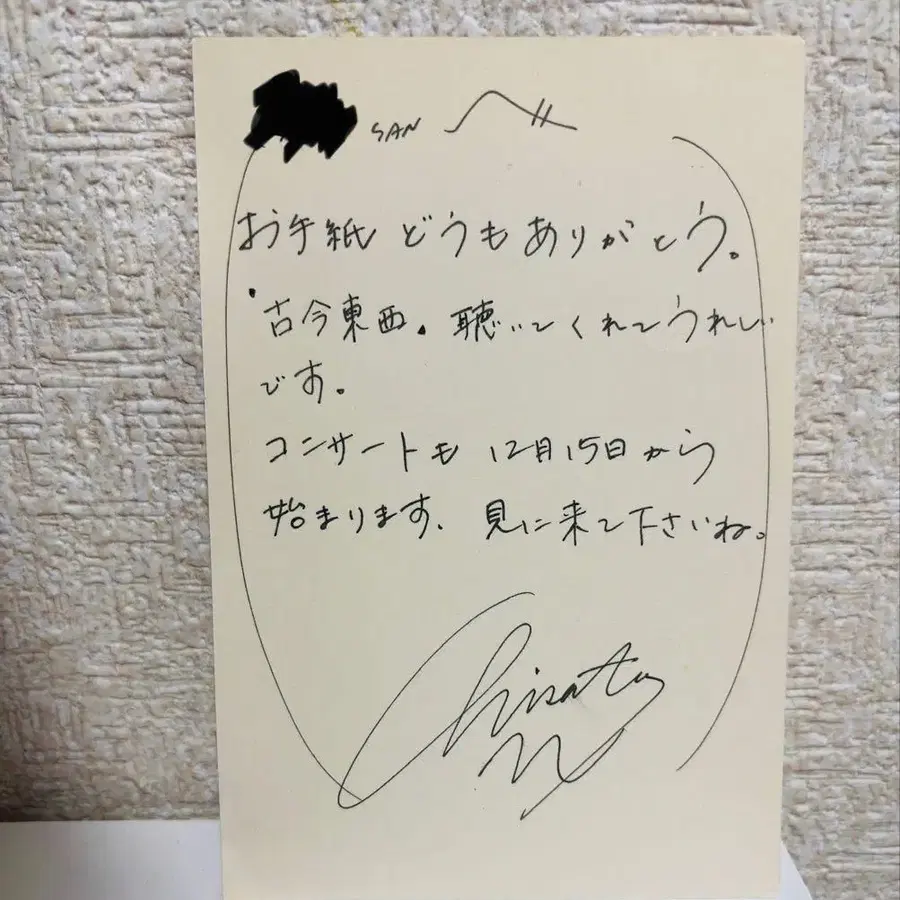 SAN へ
お手紙 どうもありがとう。
古今東西. 聴いてくれてうれしい
です。
コンサートも 12月15日から
始まります. 見に来て下さいね。
Chisato M